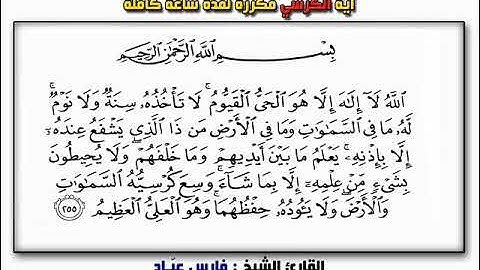 آية الكرسي مكررة لمدة ساعة كاملة
بِسْمِ اللَّهِ الرَّحْمَٰنِ الرَّحِيمِ
اللَّهُ لَا إِلَٰهَ إِلَّا هُوَ الْحَيُّ الْقَيُّومُ ۚ لَا تَأْخُذُهُ سِنَةٌ وَلَا نَوْمٌ ۚ
لَّهُ مَا فِي السَّمَاوَاتِ وَمَا فِي الْأَرْضِ ۗ مَن ذَا الَّذِي يَشْفَعُ عِندَهُ
إِلَّا بِإِذْنِهِ ۚ يَعْلَمُ مَا بَيْنَ أَيْدِيهِمْ وَمَا خَلْفَهُمْ ۖ وَلَا يُحِيطُونَ
بِشَيْءٍ مِّنْ عِلْمِهِ إِلَّا بِمَا شَاءَ ۚ وَسِعَ كُرْسِيُّهُ السَّمَاوَاتِ
وَالْأَرْضَ ۖ وَلَا يَئُودُهُ حِفْظُهُمَا ۚ وَهُوَ الْعَلِيُّ الْعَظِيمُ ٢٥٥
القارئ الشيخ : فارس عبّاد